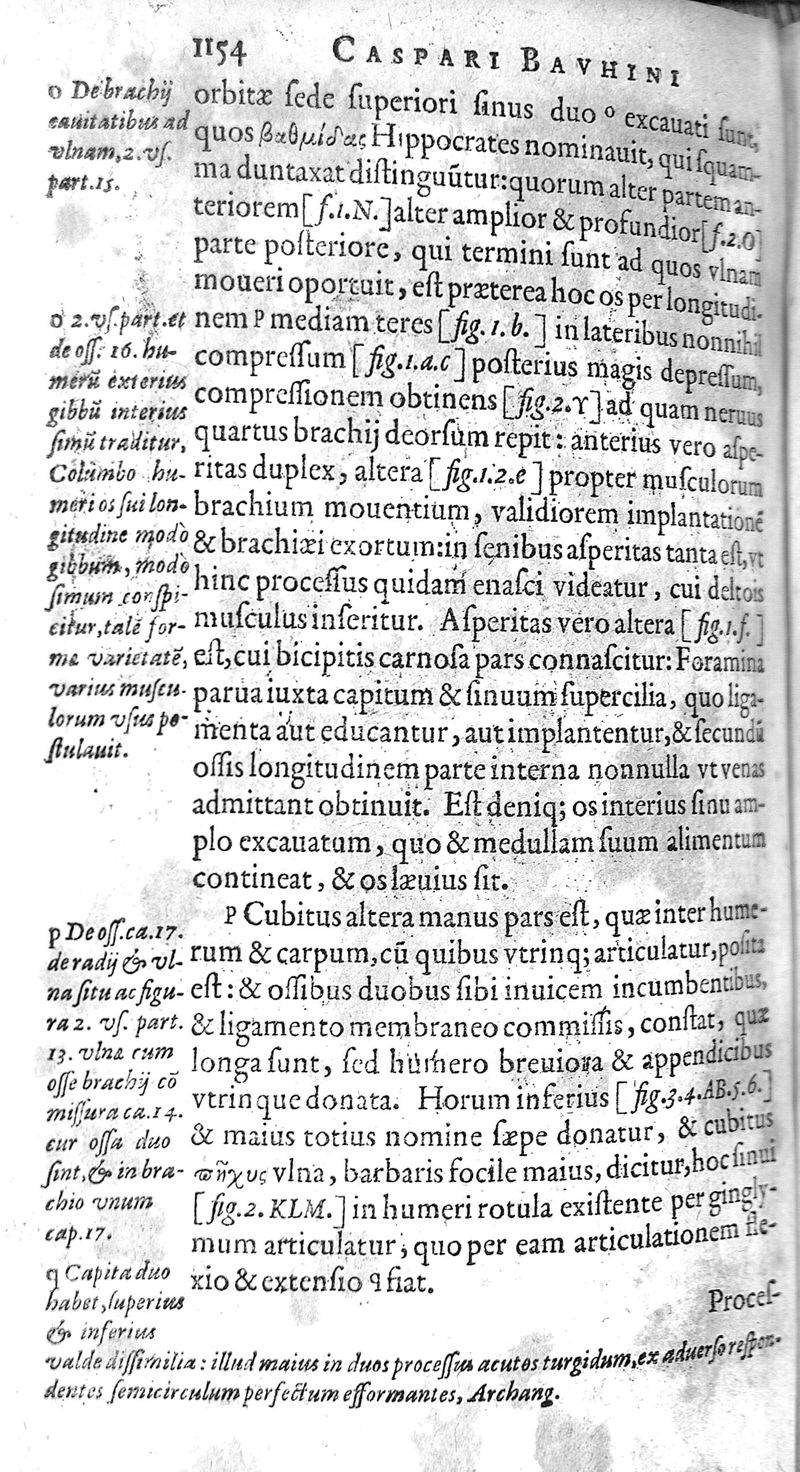 1154 CASPARI BAVHINI
orbitæ ſede ſuperiori ſinus duo o excauati ſunt,
quos βαθμίδας Hippocrates nominauit, qui ſquam-
ma duntaxat diſtinguũtur: quorum alter partem an-
teriorem [f.1.N.] alter amplior & profundior [f.2.O]
parte poſteriore, qui termini ſunt ad quos vlnam
moueri oportuit, eſt præterea hoc os per longitudi-
nem P mediam teres [fig. 1. b.] in lateribus nonnihil
compreſſum [fig.1.a.c] poſterius magis depreſſum,
compreſſionem obtinens [fig.2.Y] ad quam neruus
quartus brachij deorſùm repit: anterius vero aſpe-
ritas duplex, altera [fig.1.2.e] propter muſculorum
brachium mouentium, validiorem implantationẽ
& brachiæi exortum: in ſenibus aſperitas tanta eſt, vt
hinc proceſſus quidam enaſci videatur, cui deltois
muſculus inſeritur. Aſperitas vero altera [fig.1.f.]
eſt, cui bicipitis carnoſa pars connaſcitur: Foramina
parua iuxta capitum & ſinuum ſupercilia, quo liga-
menta aut educantur, aut implantentur, & ſecundũ
oſſis longitudinem parte interna nonnulla vt venas
admittant obtinuit. Eſt deniq; os interius ſinu am-
plo excauatum, quo & medullam ſuum alimentum
contineat, & os læuius ſit.
P Cubitus altera manus pars eſt, quæ inter hume-
rum & carpum, cũ quibus vtrinq; articulatur, poſita
eſt: & oſſibus duobus ſibi inuicem incumbentibus,
& ligamento membraneo commiſſis, conſtat, quæ
longa ſunt, ſed humero breuiora & appendicibus
vtrinque donata. Horum inferius [fig.3.4.AB.5.6.]
& maius totius nomine ſæpe donatur, & cubitus
ϖῆχυς vlna, barbaris focile maius, dicitur, hoc ſinui
[fig.2. KLM.] in humeri rotula exiſtente per gingly-
mum articulatur, quo per eam articulationem fle-
xio & extenſio q fiat.
Proceſ-
o De brachij
cauitatibus ad
vlnam, 2. vſ.
part. 15.
o 2. vſ. part. et
de oſſ. 16. hu-
merũ exterius
gibbũ interius
ſimũ traditur,
Columbo hu-
meri os ſui lon-
gitudine modò
gibbum, modò
ſimum conſpi-
citur, talẽ for-
mæ varietatẽ,
varius muſcu-
lorum vſus po-
ſtulauit.
p De oſſ. ca. 17.
de radij & vl-
na ſitu ac figu-
ra 2. vſ. part.
13. vlnæ cum
oſſe brachij cõ
miſſura ca. 14.
cur oſſa duo
ſint, & in bra-
chio vnum
cap. 17.
q Capita duo
habet, ſuperius
& inferius
valde diſſimilia: illud maius in duos proceſſus acutos turgidum, ex aduerſo reſpon-
dentes ſemicirculum perfectum efformantes, Archang.